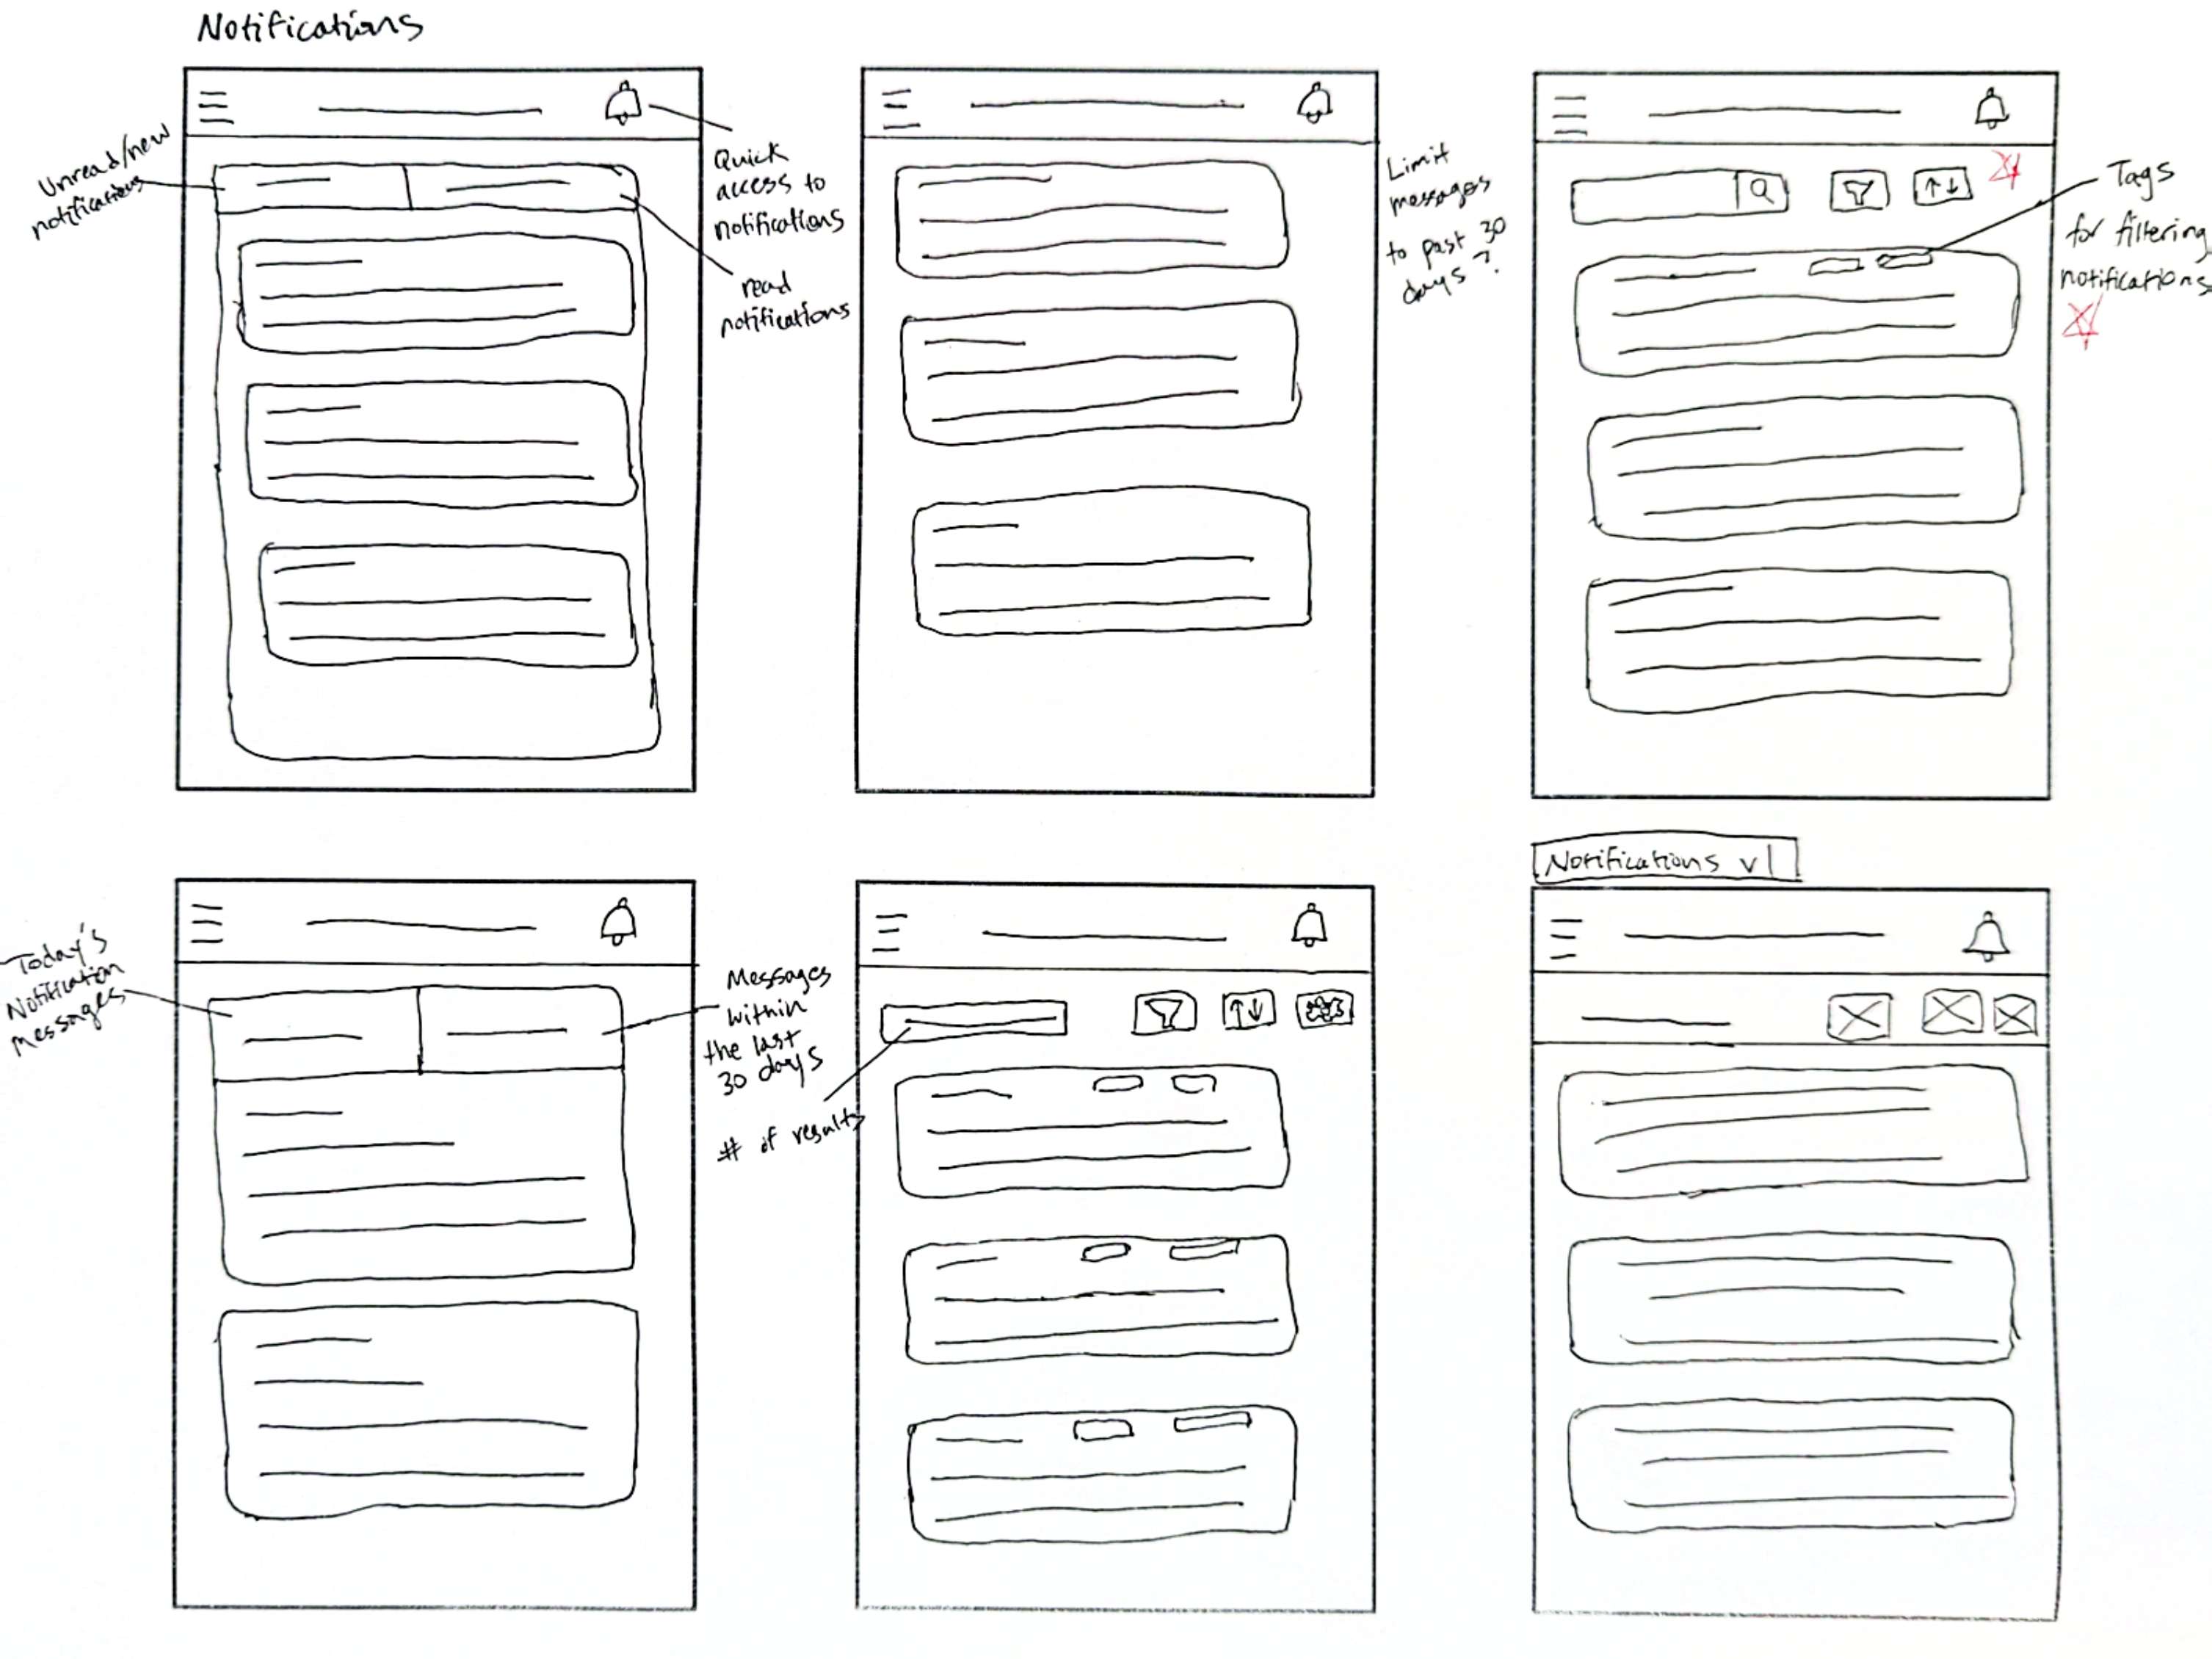 Notifications
Unread/new
notifications
Quick
access to
notifications
read
notifications
Limit
messages
to past 30
days?
Tags
for filtering
notifications
Today's
Notification
messages
Messages
within
the last
30 days
# of results
Notifications v1